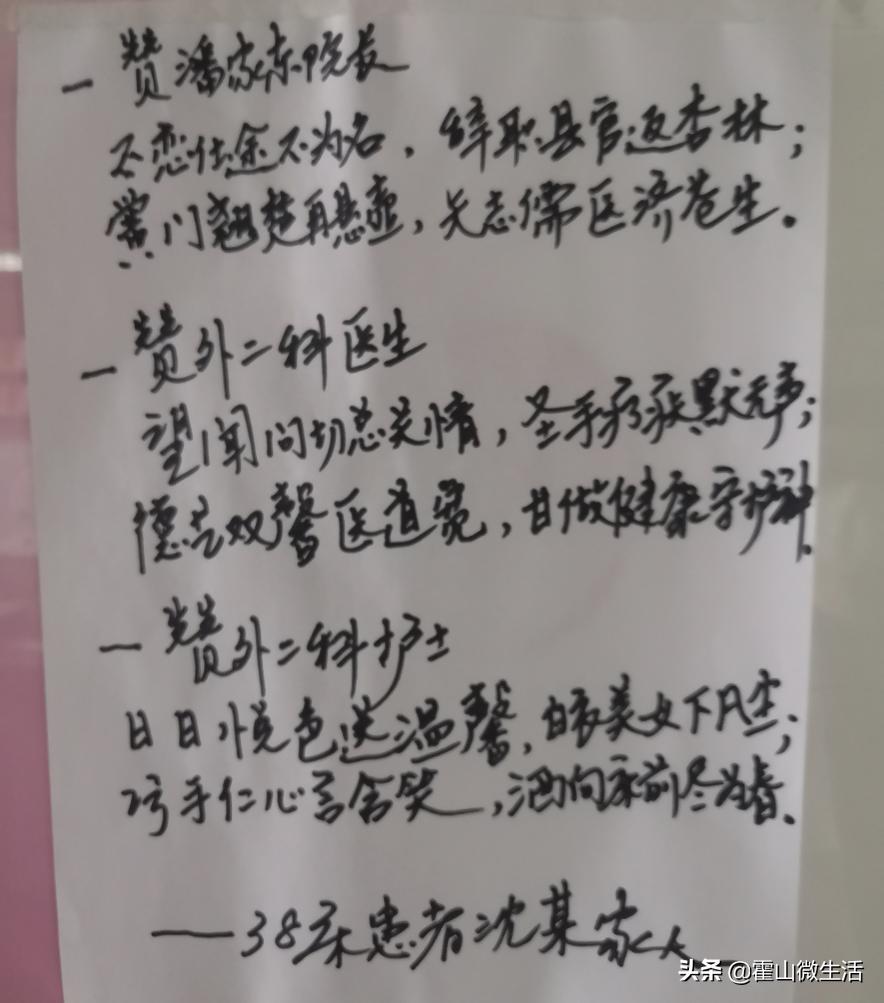 一 赞潘家东院长
不恋仕途不为名，辞职县官返杏林；
黉门翘楚再悬壶，矢志儒医济苍生。
一 赞外二科医生
望闻问切总关情，圣手疗疾默无声；
德艺双馨医道宽，甘做健康守护神。
一 赞外二科护士
日日悦色送温馨，白衣美女下凡尘；
巧手仁心言含笑，洒向床前尽为春。
——38床患者沈某家人
头条 @霍山微生活